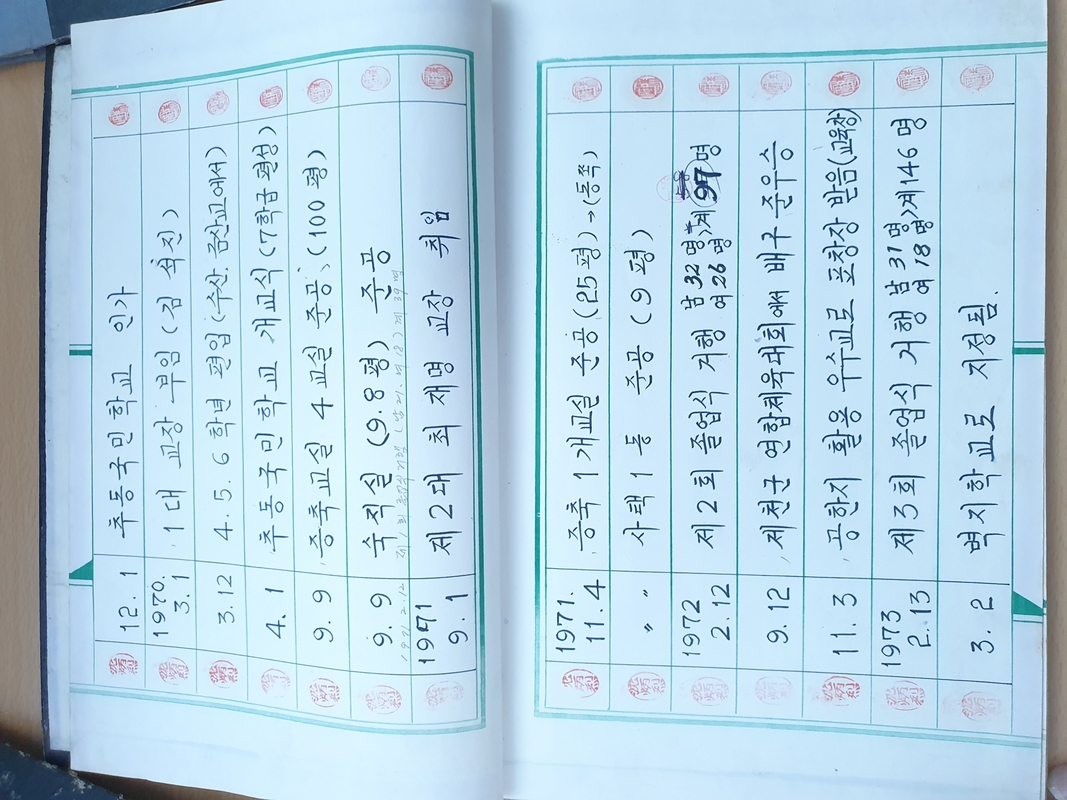 12. 1 추동국민학교 인가
1970.
3. 1 1대 교장 부임 (김 석진)
3. 12 4. 5. 6 학년 편입 (수산. 금산교에서)
4. 1 추동국민학교 개교식 (7학급 편성)
9. 9 증축교실 4 교실 준공, (100 평)
9. 9 숙직실 (9.8 평) 준공
1971. 2. 12 제 1 회
1971
9. 1 제2대 최 재명 교장 취임
1971.
11. 4 증축 1 개교실 준공 (25 평) → (동쪽)
〃 〃 사택 1 동 준공 (9 평)
1972
2. 12 제 2 회 졸업식 거행 남 32 명 여 26 명 > 계 97 명
9. 12 제천군 연합체육대회에서 배구 준우승
11. 3 공한지 활용 우수교로 표창장 받음 (교육장)
1973
2. 13 제 3 회 졸업식 거행 남 31 명 여 18 명 > 계 146 명
3. 2 벽지학교로 지정됨.